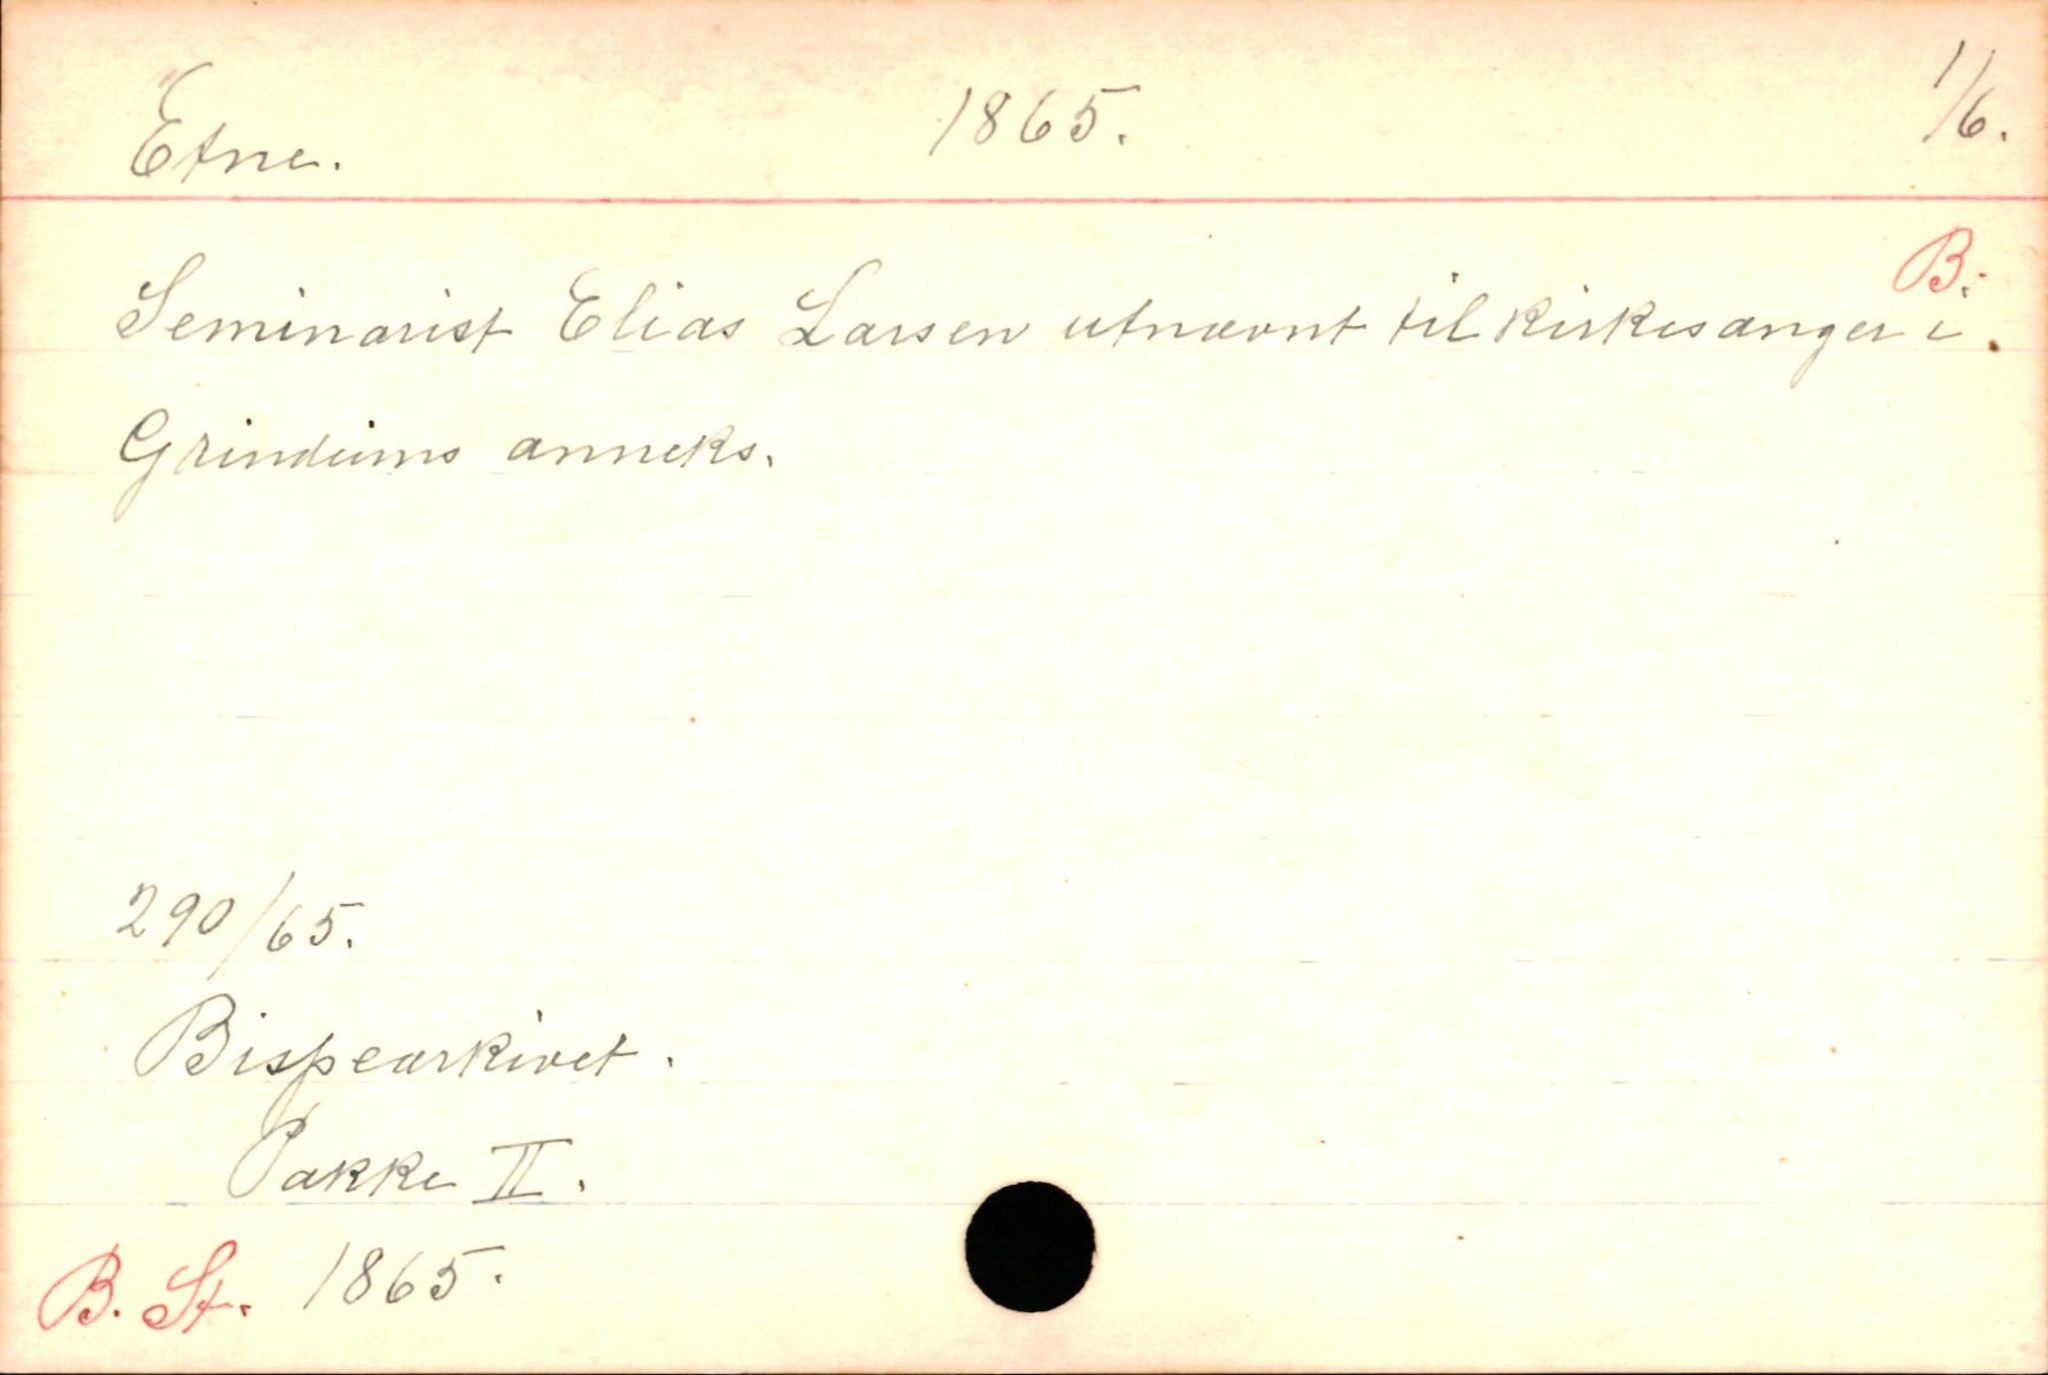 Etne. 1865. 1/6.
B.
Seminarist Elias Larsen utnævnt til kirkesanger i
Grindeims anneks.
290/65.
Bispearkivet.
Pakke II.
B. St. 1865.